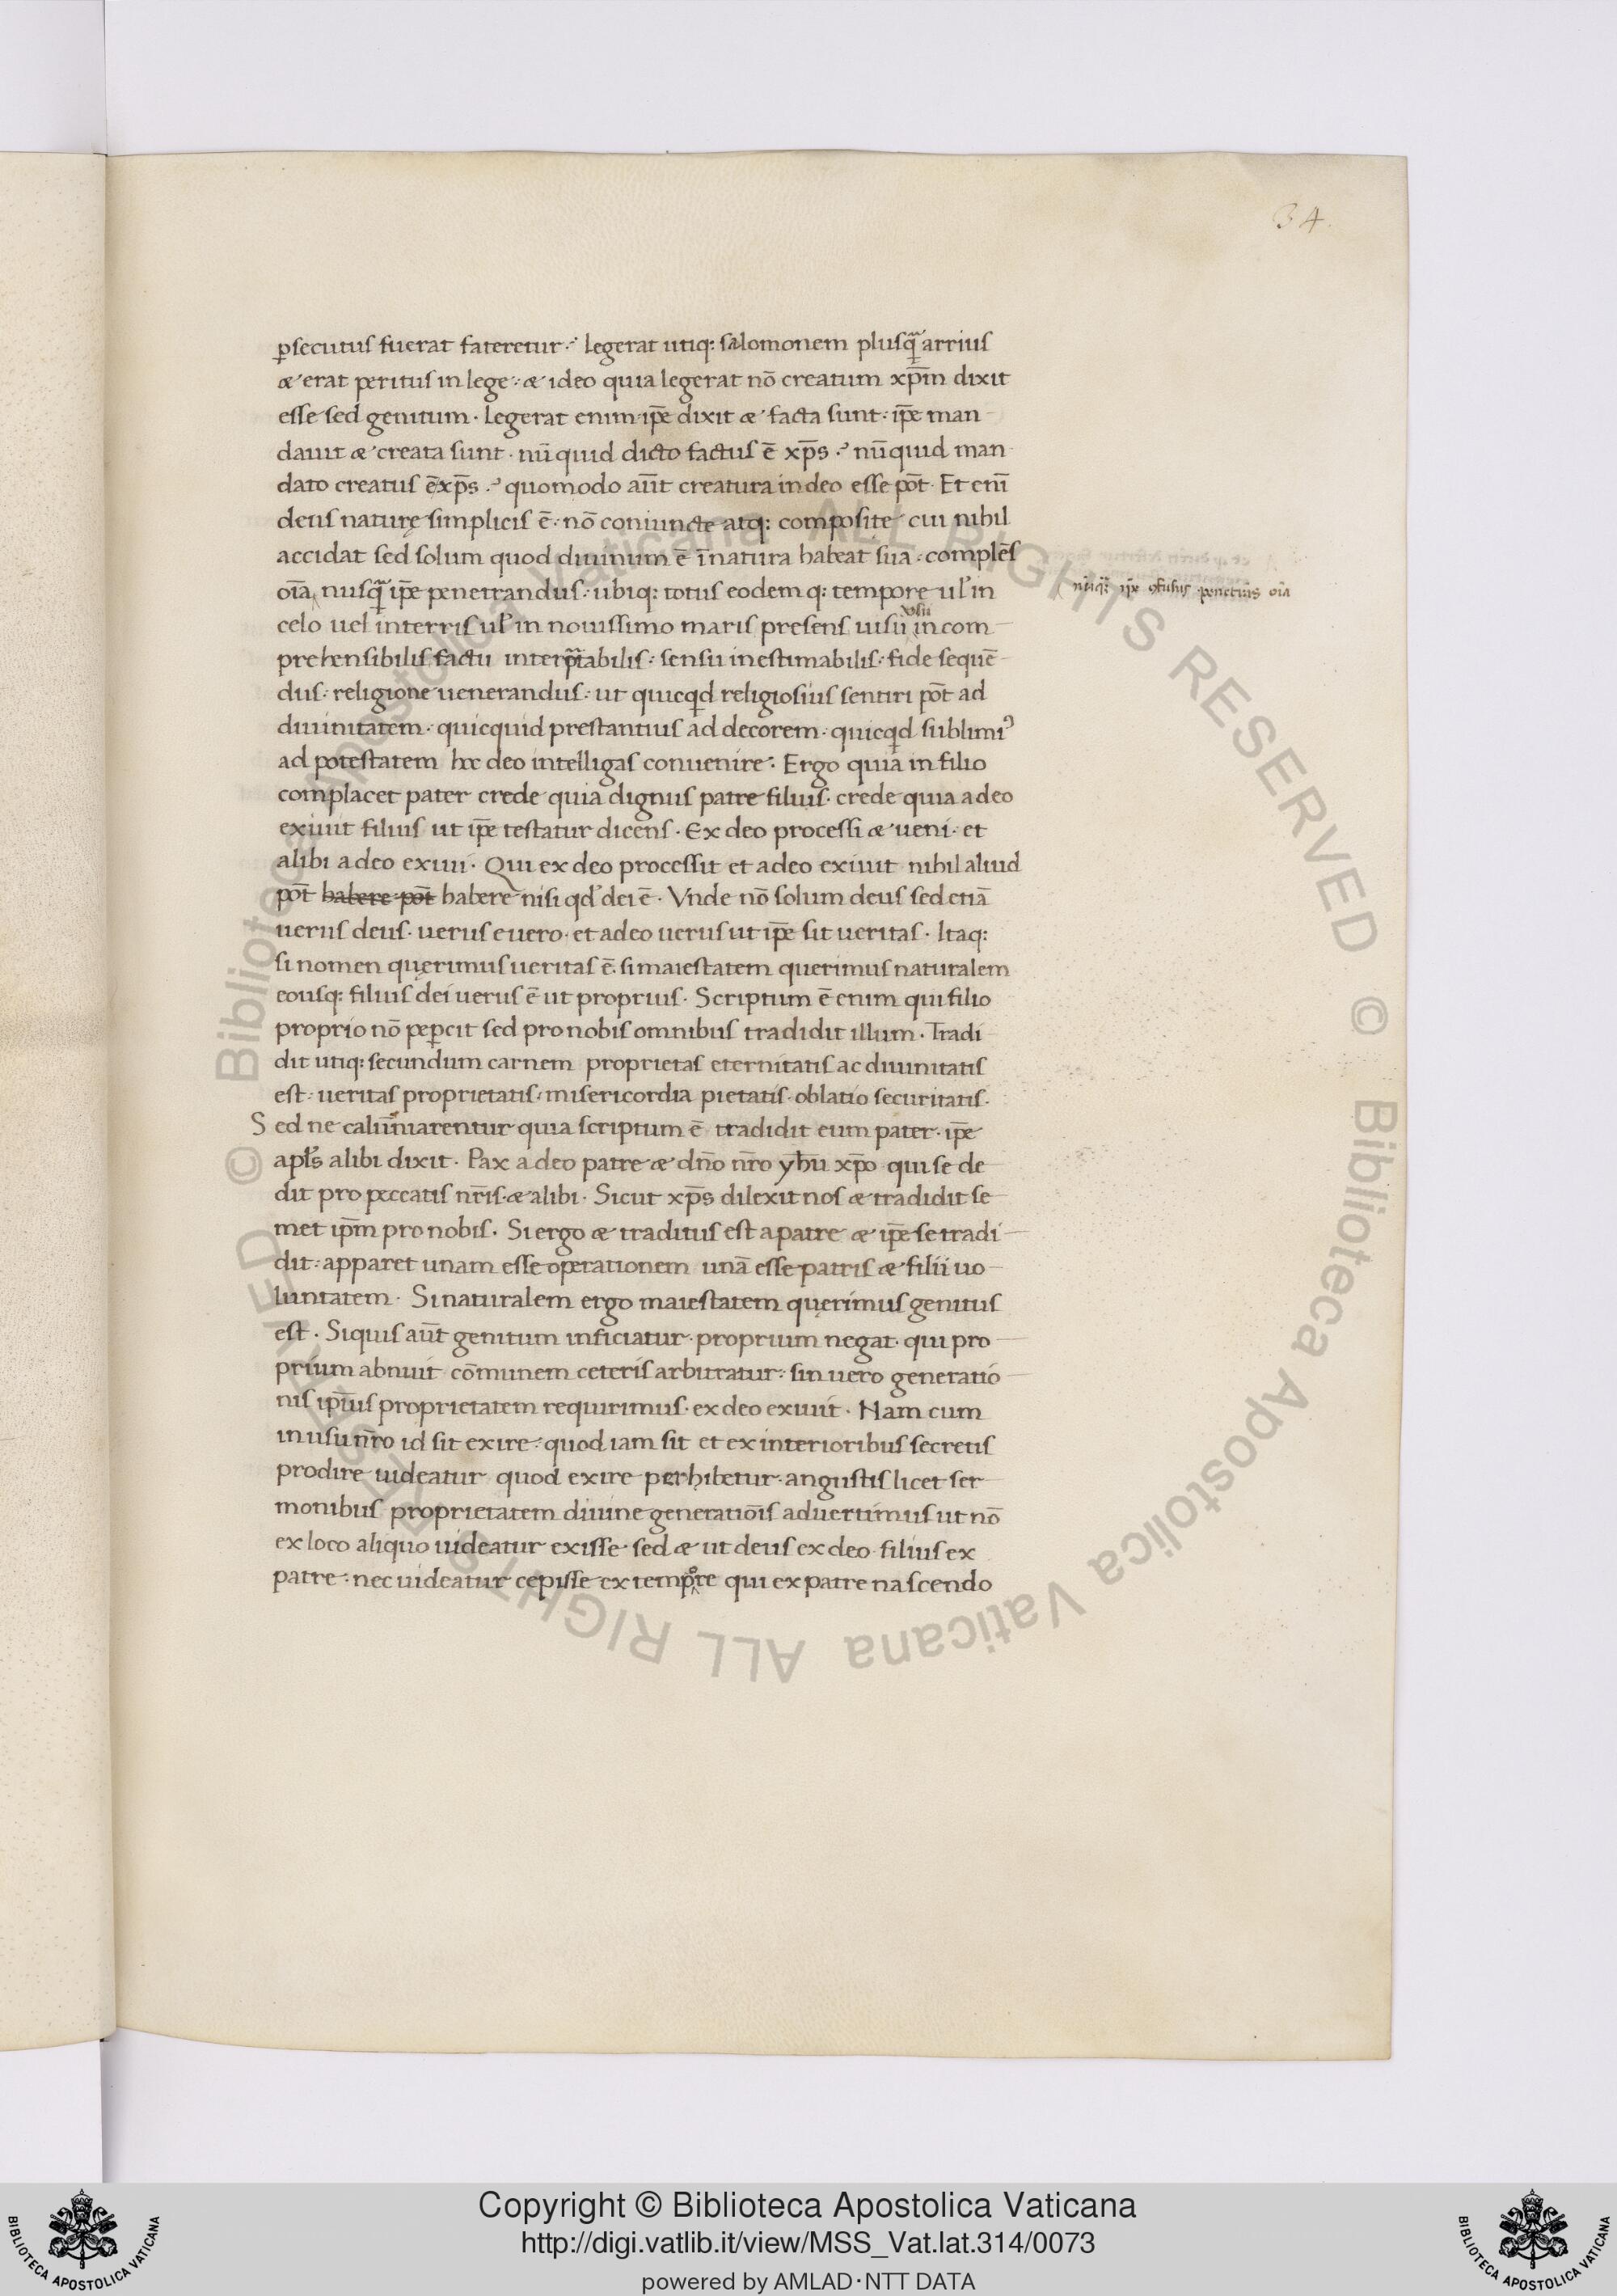 34.
p̱secutus fuerat fateretur·᷎ legerat utiq: salomonem plusq̃ arrius
æ erat peritus in lege: æ ideo quia legerat nō creatum xp̄m dixit
esse sed genitum · legerat enim ip̄e dixit æ facta sunt: ip̄e man
dauit æ creata sunt · nū quid dicto factus ē xp̄s ·᷎ nū quid man
dato creatus ē xp̄s ·᷎ quomodo aūt creatura in deo esse pōt · Et enī
deus naturę simplicis ē · nō coniuncte atq: composite cui nihil
accidat sed solum quod diuinum ē ī natura habeat sua : complēs
oīa nusq̃ ip̄e penetrandus : ubiq: totus eodem q: tempore ul' in
nūqȝ ip̄e ꝯfusus penetrās oīa
celo uel in terris ul' in nouissimo maris presens uisu incom
prehensibilis factu interp̃tabilis : sensu inestimabilis : fide sequē
dus : religione uenerandus : ut quicqd religiosius sentiri pōt ad
diuinitatem · quicquid prestantius ad decorem · quicqd sublimi᾽
ad potestatem hoc deo intelligas conuenire · Ergo quia in filio
complacet pater crede quia dignus patre filius · crede quia a deo
exiuit filius ut ip̄e testatur dicens · Ex deo processi æ ueni · et
alibi a deo exiui · Qui ex deo processit et a deo exiuit nihil aliud
pōt habere pōt habere nisi qd' dei ē · Vnde nō solum deus sed etiā
uerus deus · uerus e uero · et adeo uerus ut ip̄e sit ueritas · Itaq:
si nomen quęrimus ueritas ē · si maiestatem querimus naturalem
eousq: filius dei uerus ē ut proprius · Scriptum ē enim qui filio
proprio nō pep̱cit sed pro nobis omnibus tradidit illum · Tradi
dit utiq: secundum carnem proprietas eternitatis ac diuinitatis
est : ueritas proprietatis : misericordia pietatis · oblatio securitatis ·
Sed ne calūniarentur quia scriptum ē tradidit eum pater · ip̄e
apl's alibi dixit · Pax a deo patre æ dn̄o nr̄o yhū xp̄o qui se de
dit pro peccatis nr̄is · æ alibi · Sicut xp̄s dilexit nos æ tradidit se
met ip̄m pro nobis · Si ergo æ traditus est a patre æ ip̄e se tradi
dit : apparet unam esse operationem unā esse patris æ filii uo
luntatem · Si naturalem ergo maiestatem quęrimus genitus
est · Siquis aūt genitum inficiatur · proprium negat · qui pro
prium abnuit cōmunem ceteris arbitratur · sin uero generatio
nis ip̄ius proprietatem requirimus · ex deo exiuit · Nam cum
in usu nr̄o id sit exire : quod iam sit et ex interioribus secretis
prodire uideatur quod exire perhibetur · angustis licet ser
monibus proprietatem diuine generatiōis aduertimus ut nō
ex loco aliquo uideatur exisse · sed æ ut deus ex deo filius ex
patre · nec uideatur cepisse ex tempore qui ex patre nascendo
© Biblioteca Apostolica Vaticana ALL RIGHTS RESERVED © Biblioteca Apostolica Vaticana ALL RIGHTS RESERVED
Copyright © Biblioteca Apostolica Vaticana
http://digi.vatlib.it/view/MSS_Vat.lat.314/0073
powered by AMLAD·NTT DATA
BIBLIOTECA APOSTOLICA VATICANA
BIBLIOTECA APOSTOLICA VATICANA